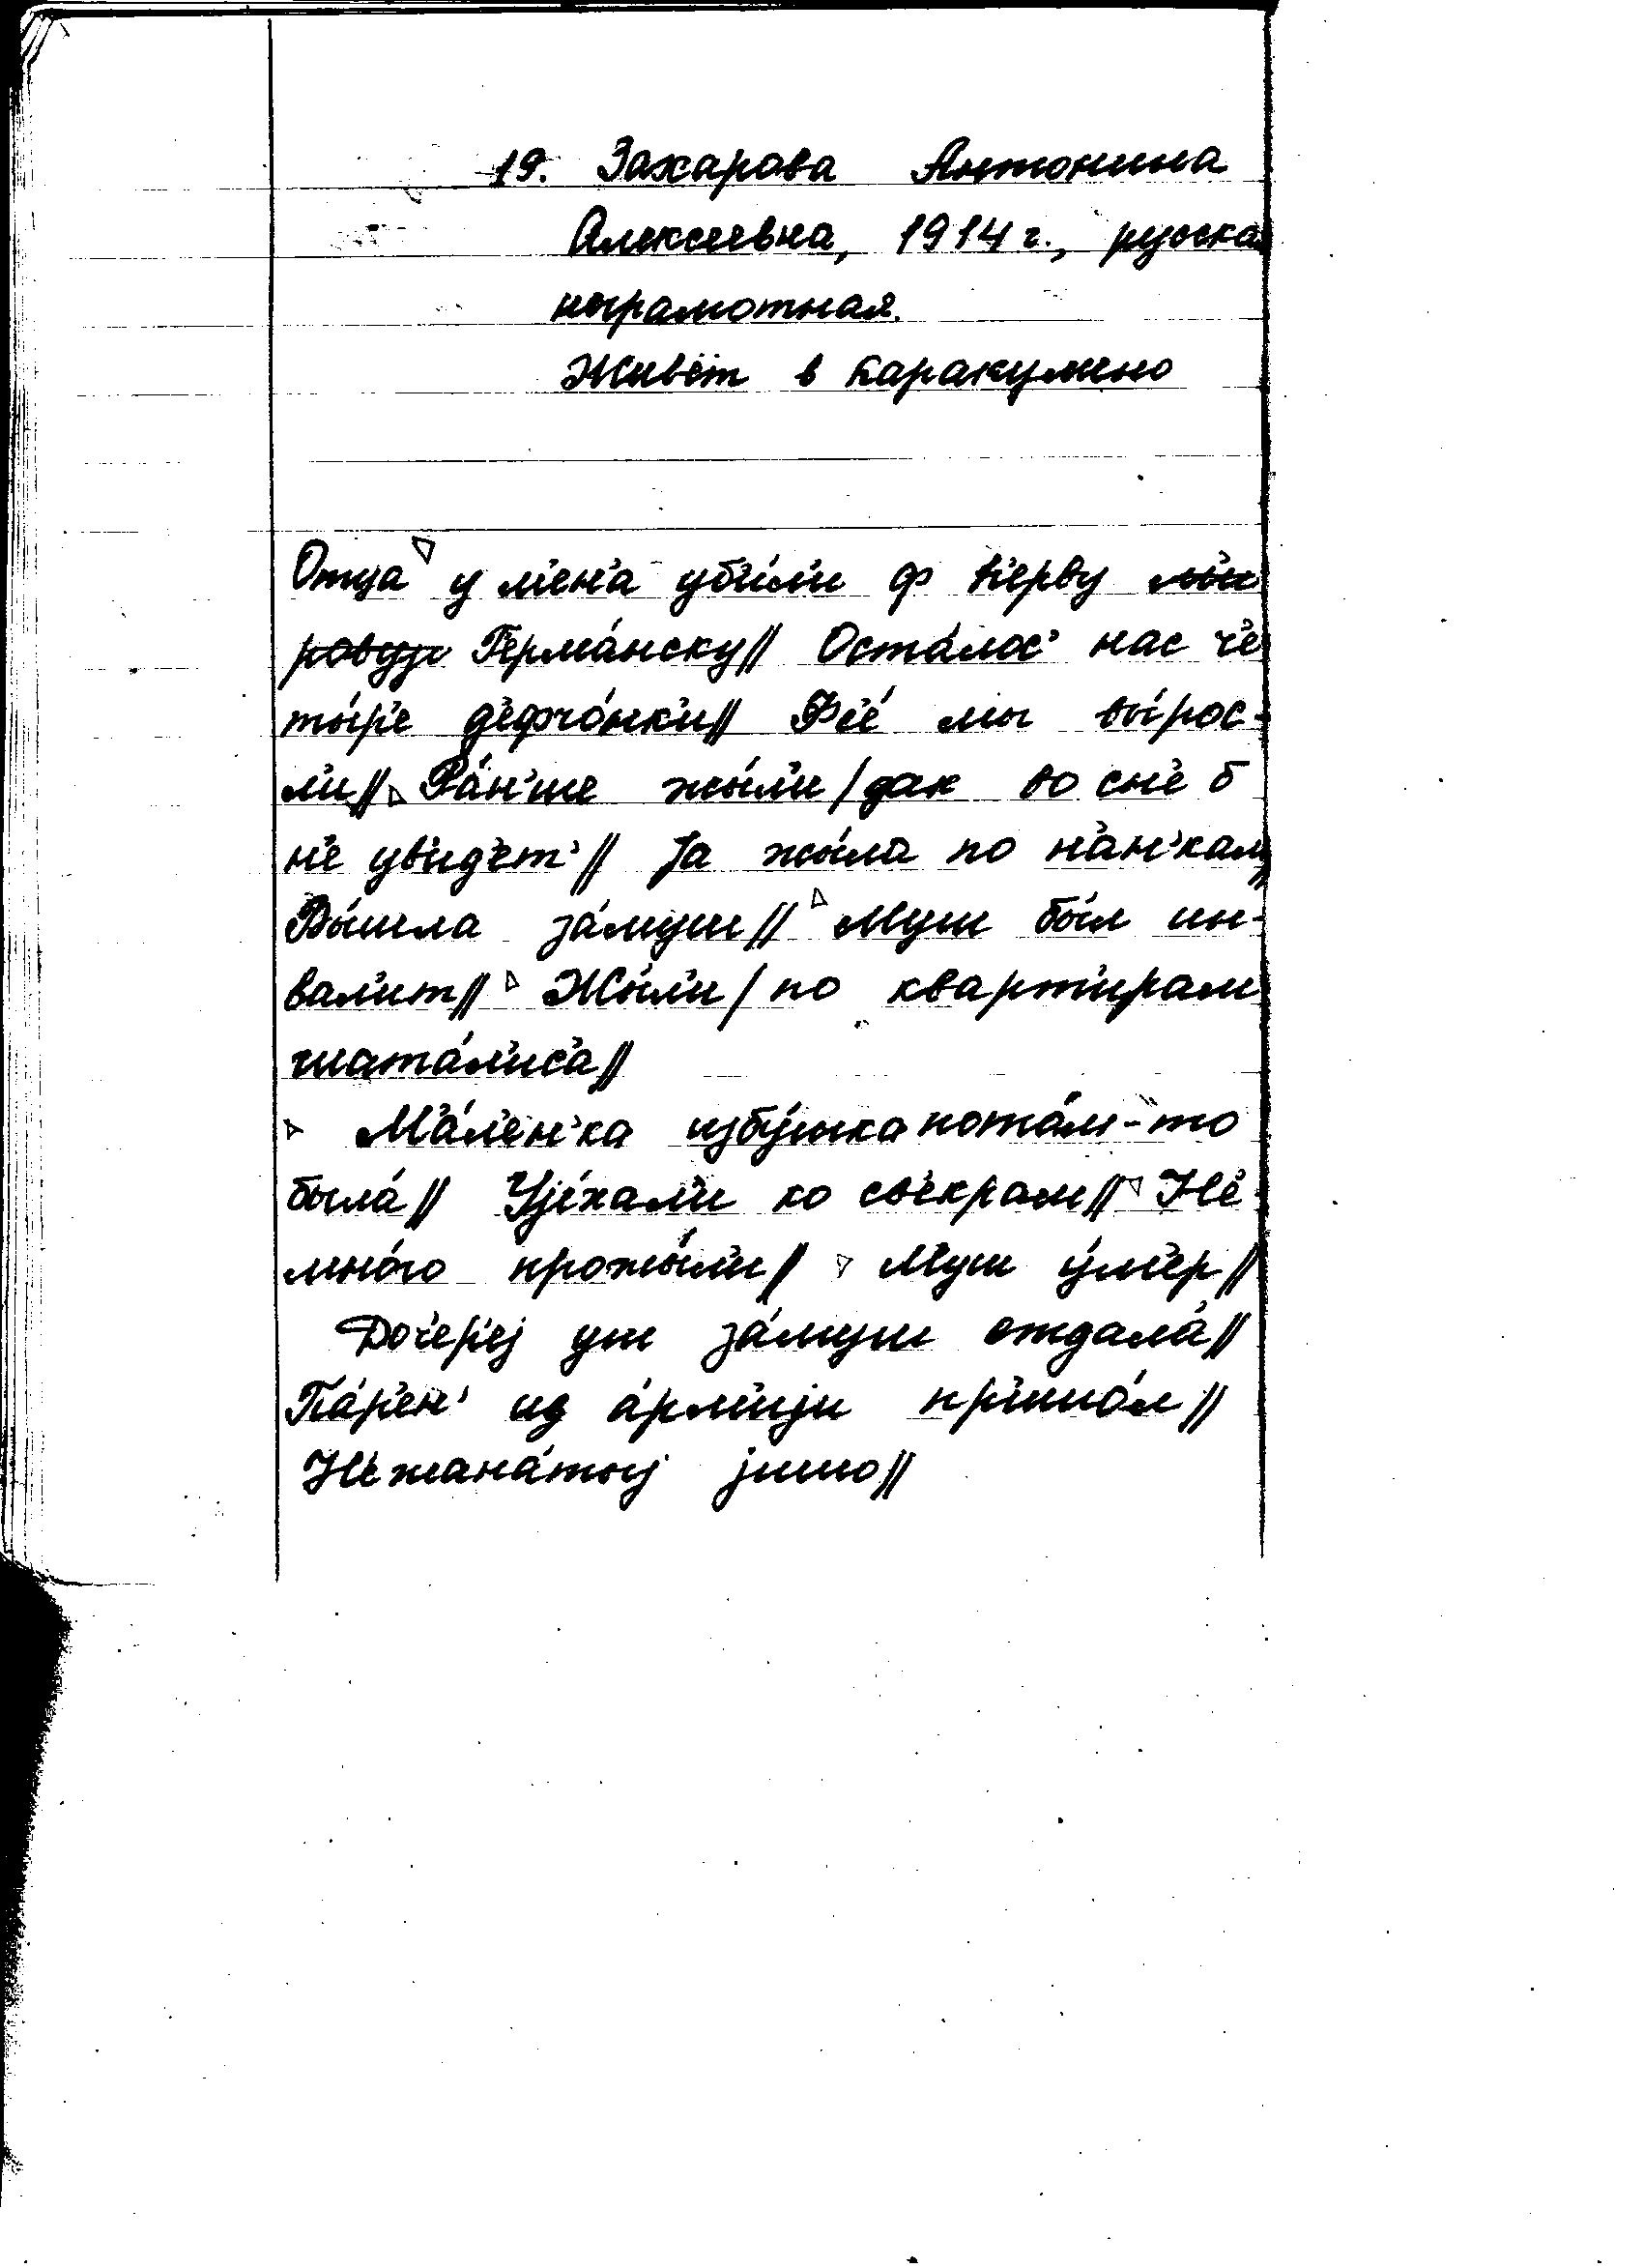 19. Захарова Антонина
Алексеевна, 1914 г., русская
неграмотная.
Живёт в Каракулино
Отца у м'ен'а уб'и́л'и ф п'ерву м'и-
ровуjу Герма́нску// Оста́лос' нас ч'е
ты́р'е д'ефчо́нк'и// Фс'е́ мы вы́рос-
л'и// Ра́н'ше жы́л'и / дак во сн'е б
н'е ув'ид'ет'// Jа жыла по н'а́н'кам//
Вы́шла за́муш// Муш был ин-
вал'ит// Жы́л'и / по кварт'ирам
шата́л'ис'а//
Ма́л'ен'ка избу́шка пота́м-то
была́// Уjе́хал'и ко св'екрам// Н'е
мно́го прожы́л'и// Муш у́м'ер//
Доч'ер'еj уш за́муш отдала́//
Па́р'ен' из а́рм'иjи пр'ишо́л//
Н'ежана́тыj jишо//